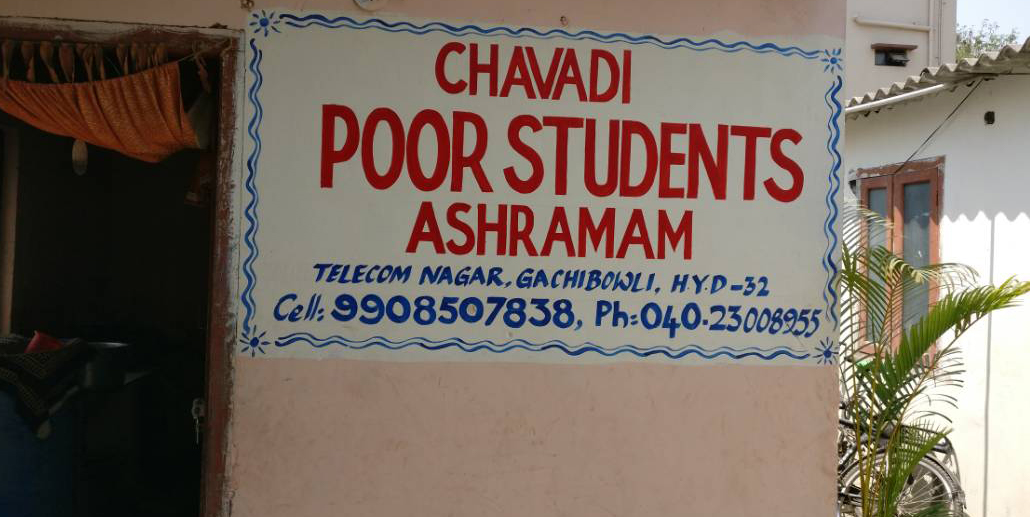 CHAVADI
POOR STUDENTS
ASHRAMAM
TELECOM NAGAR, GACHIBOWLI, H.Y.D-32
Cell: 9908507838, Ph:040-23008955